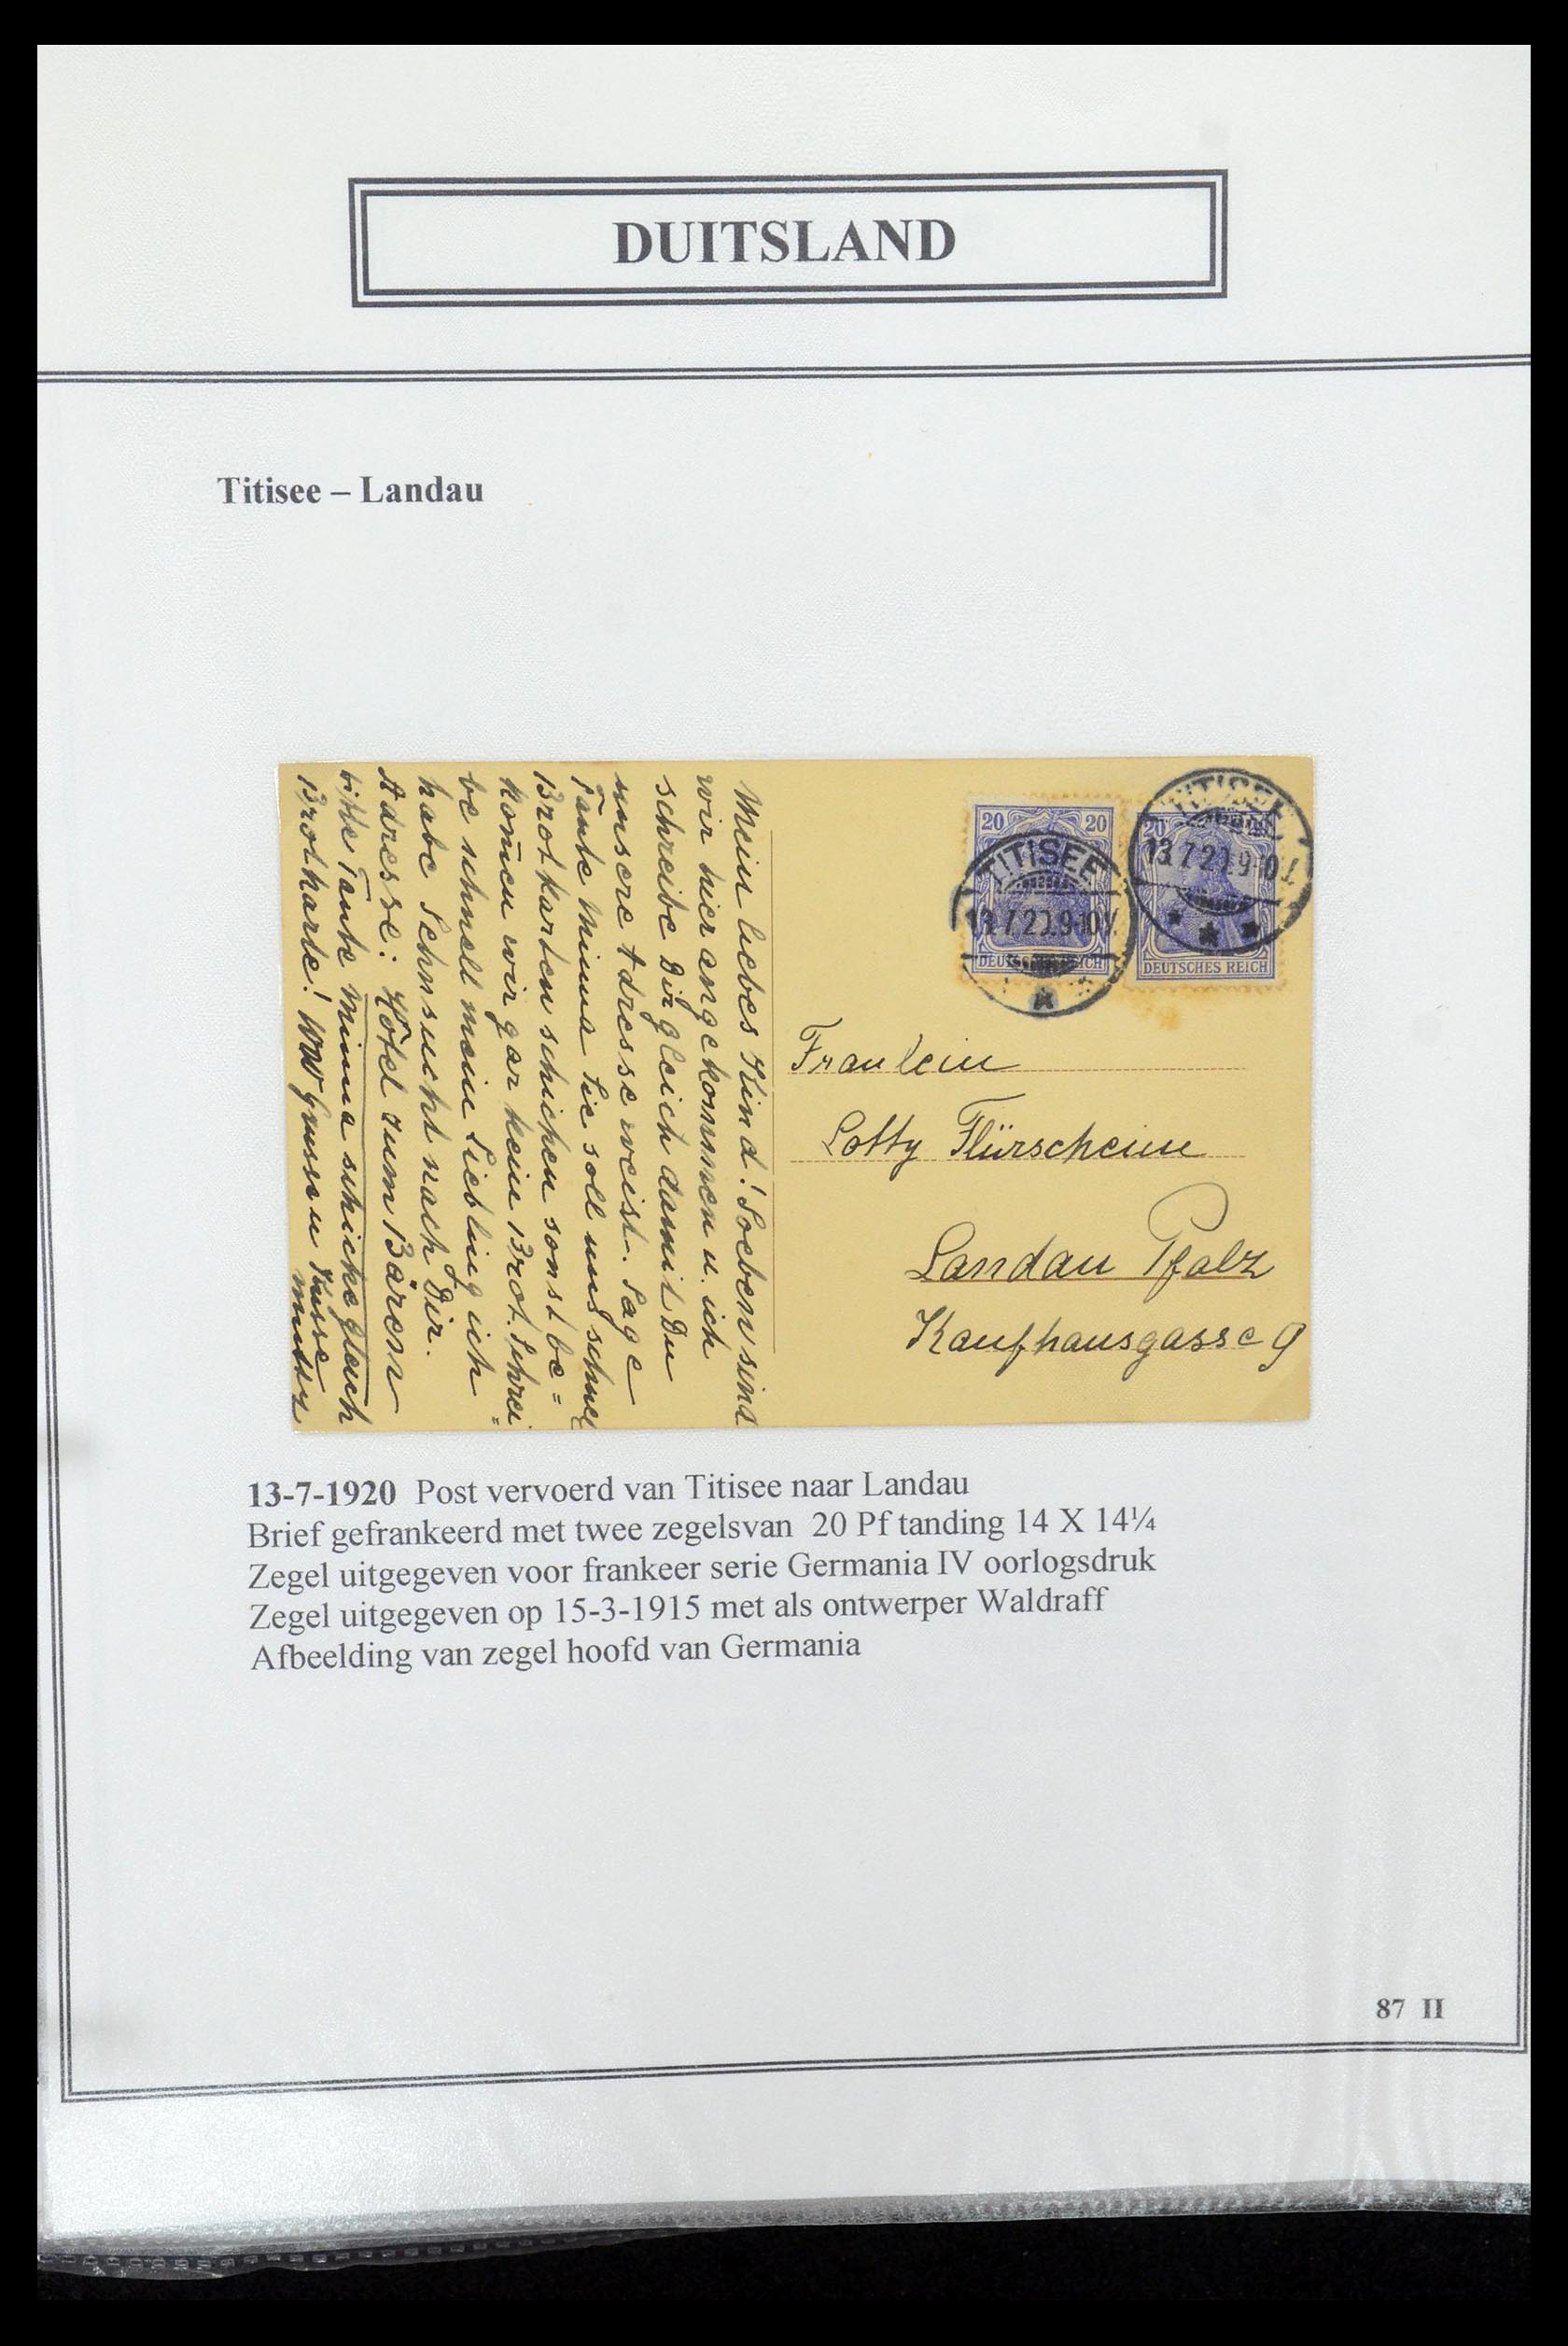 DUITSLAND
Titisee – Landau
20 20
DEUTSCHES REICH
TITISEE
13.7.20.9-10V.
20 20
DEUTSCHES REICH
TITISEE
13.7.20.9-10
Fraulein
Lotty Flürscheim
Landau Pfalz
Kaufhausgasse 9
Mein liebes Kind! Soeben sind
wir hier angekommen u. ich
schreibe Dir gleich damit Du
unsere Adresse weist. Sage
Tante Minna Sie soll uns schnell
Brotkarten schicken sonst be=
kom̄en wir gar kein Brot. Schrei=
be schnell mein Liebling ich
habe Sehnsucht nach Dir.
Adresse: Hôtel zum Bären
bitte Tante Minna schicke gleich
Brotkarte! Grusse u Küsse
13-7-1920 Post vervoerd van Titisee naar Landau
Brief gefrankeerd met twee zegelsvan 20 Pf tanding 14 X 14¼
Zegel uitgegeven voor frankeer serie Germania IV oorlogsdruk
Zegel uitgegeven op 15-3-1915 met als ontwerper Waldraff
Afbeelding van zegel hoofd van Germania
87 II